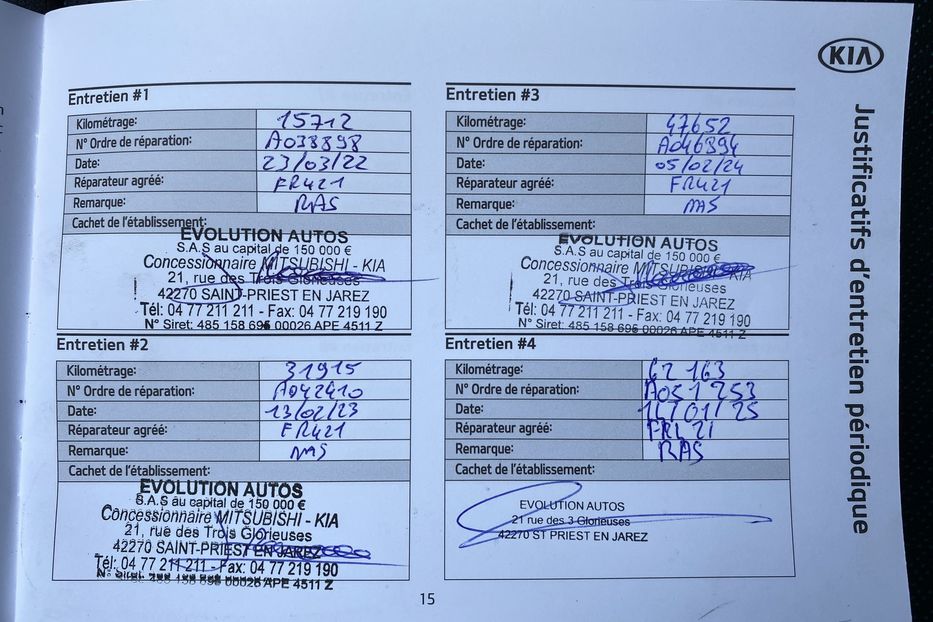 KIA
Justificatifs d'entretien périodique
Entretien #1
Kilométrage: 15712
N° Ordre de réparation: A038898
Date: 23/03/22
Réparateur agréé: FR421
Remarque: RAS
Cachet de l'établissement:
EVOLUTION AUTOS
S.A.S au capital de 150 000 €
Concessionnaire MITSUBISHI - KIA
21, rue des Trois Glorieuses
42270 SAINT-PRIEST EN JAREZ
Tél: 04 77 211 211 - Fax: 04 77 219 190
N° Siret: 485 158 695 00026 APE 4511 Z
Entretien #2
Kilométrage: 31915
N° Ordre de réparation: A042410
Date: 13/02/23
Réparateur agréé: FR421
Remarque: RAS
Cachet de l'établissement:
EVOLUTION AUTOS
S.A.S au capital de 150 000 €
Concessionnaire MITSUBISHI - KIA
21, rue des Trois Glorieuses
42270 SAINT-PRIEST EN JAREZ
Tél: 04 77 211 211 - Fax: 04 77 219 190
N° Siret: 485 158 695 00026 APE 4511 Z
Entretien #3
Kilométrage: 47652
N° Ordre de réparation: A046894
Date: 05/02/24
Réparateur agréé: FR421
Remarque: RAS
Cachet de l'établissement:
EVOLUTION AUTOS
S.A.S au capital de 150 000 €
Concessionnaire MITSUBISHI - KIA
21, rue des Trois Glorieuses
42270 SAINT-PRIEST EN JAREZ
Tél: 04 77 211 211 - Fax: 04 77 219 190
N° Siret: 485 158 695 00026 APE 4511 Z
Entretien #4
Kilométrage: 62 163
N° Ordre de réparation: A051 253
Date: 16/01/25
Réparateur agréé: FR421
Remarque: RAS
Cachet de l'établissement:
EVOLUTION AUTOS
21 rue des 3 Glorieuses
42270 ST PRIEST EN JAREZ
15